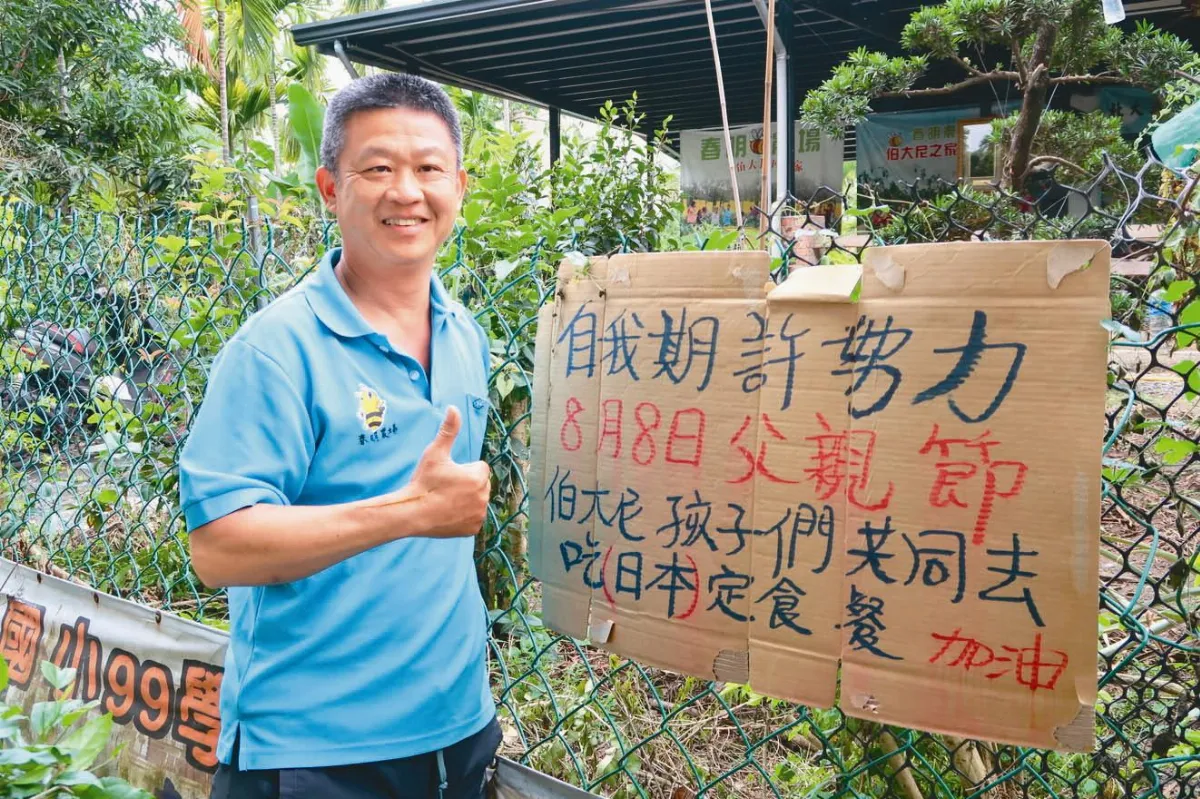 春明 場
春明農
伯大尼之家
自我期許努力
8月8日父親節
伯大尼孩子們共同去
吃(日本)定食餐
加油
春明農場
國小99學